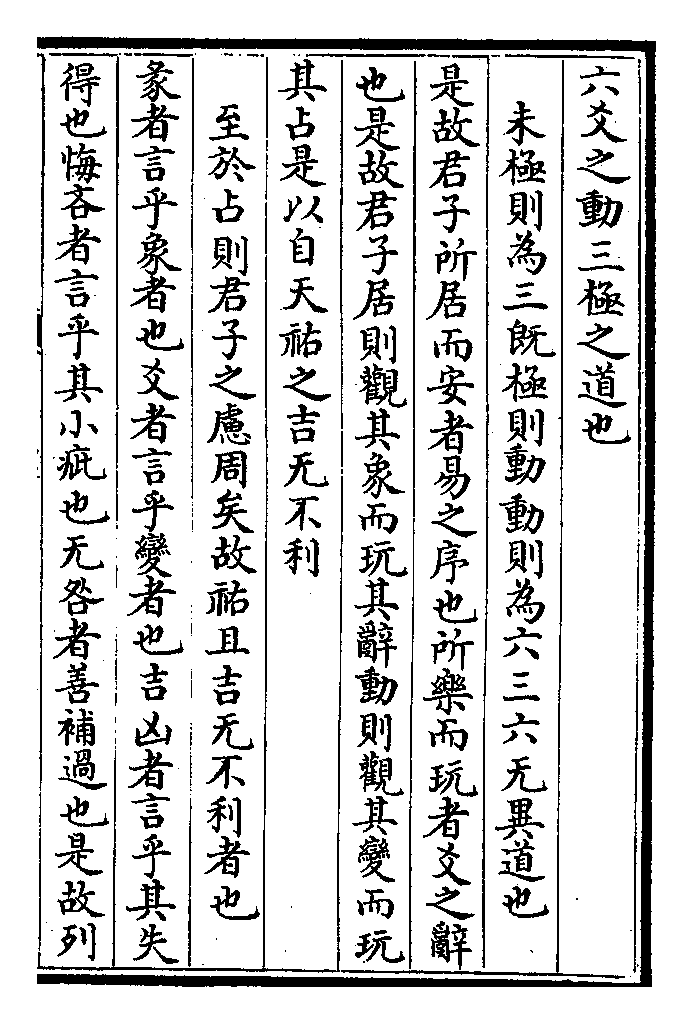 六爻之動三極之道也
未極則為三既極則動動則為六三六无異道也
是故君子所居而安者易之序也所樂而玩者爻之辭
也是故君子居則觀其象而玩其辭動則觀其變而玩
其占是以自天祐之吉无不利
至於占則君子之慮周矣故祐且吉无不利者也
彖者言乎象者也爻者言乎變者也吉凶者言乎其失
得也悔吝者言乎其小疵也无咎者善補過也是故列